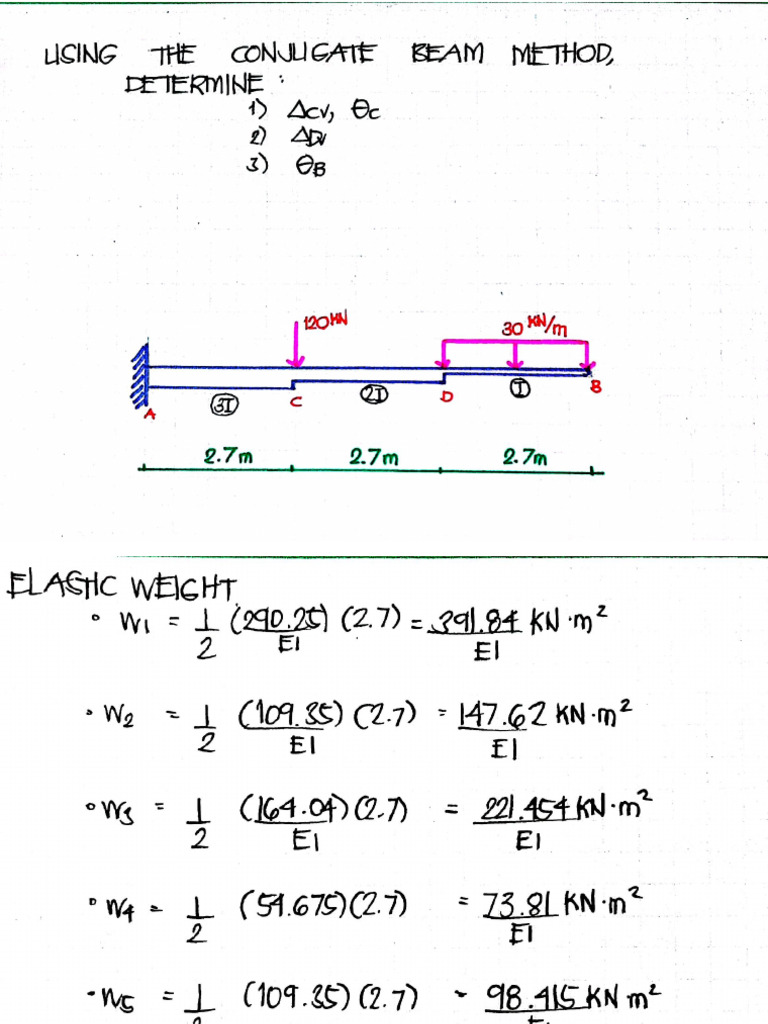 USING THE CONJUGATE BEAM METHOD,
DETERMINE :
1) ΔCV, θC
2) ΔDV
3) θB
120 KN
30 KN/m
A
3I
C
2I
D
I
B
2.7m 2.7m 2.7m
ELASTIC WEIGHT
• W1 = 1/2 (290.25)/EI (2.7) = 391.84 KN·m²/EI
• W2 = 1/2 (109.35)/EI (2.7) = 147.62 KN·m²/EI
• W3 = 1/2 (164.04)/EI (2.7) = 221.454 KN·m²/EI
• W4 = 1/2 (54.675)(2.7) = 73.81 KN·m²/EI
• W5 = 1/2 (109.35)(2.7) = 98.415 KN m²